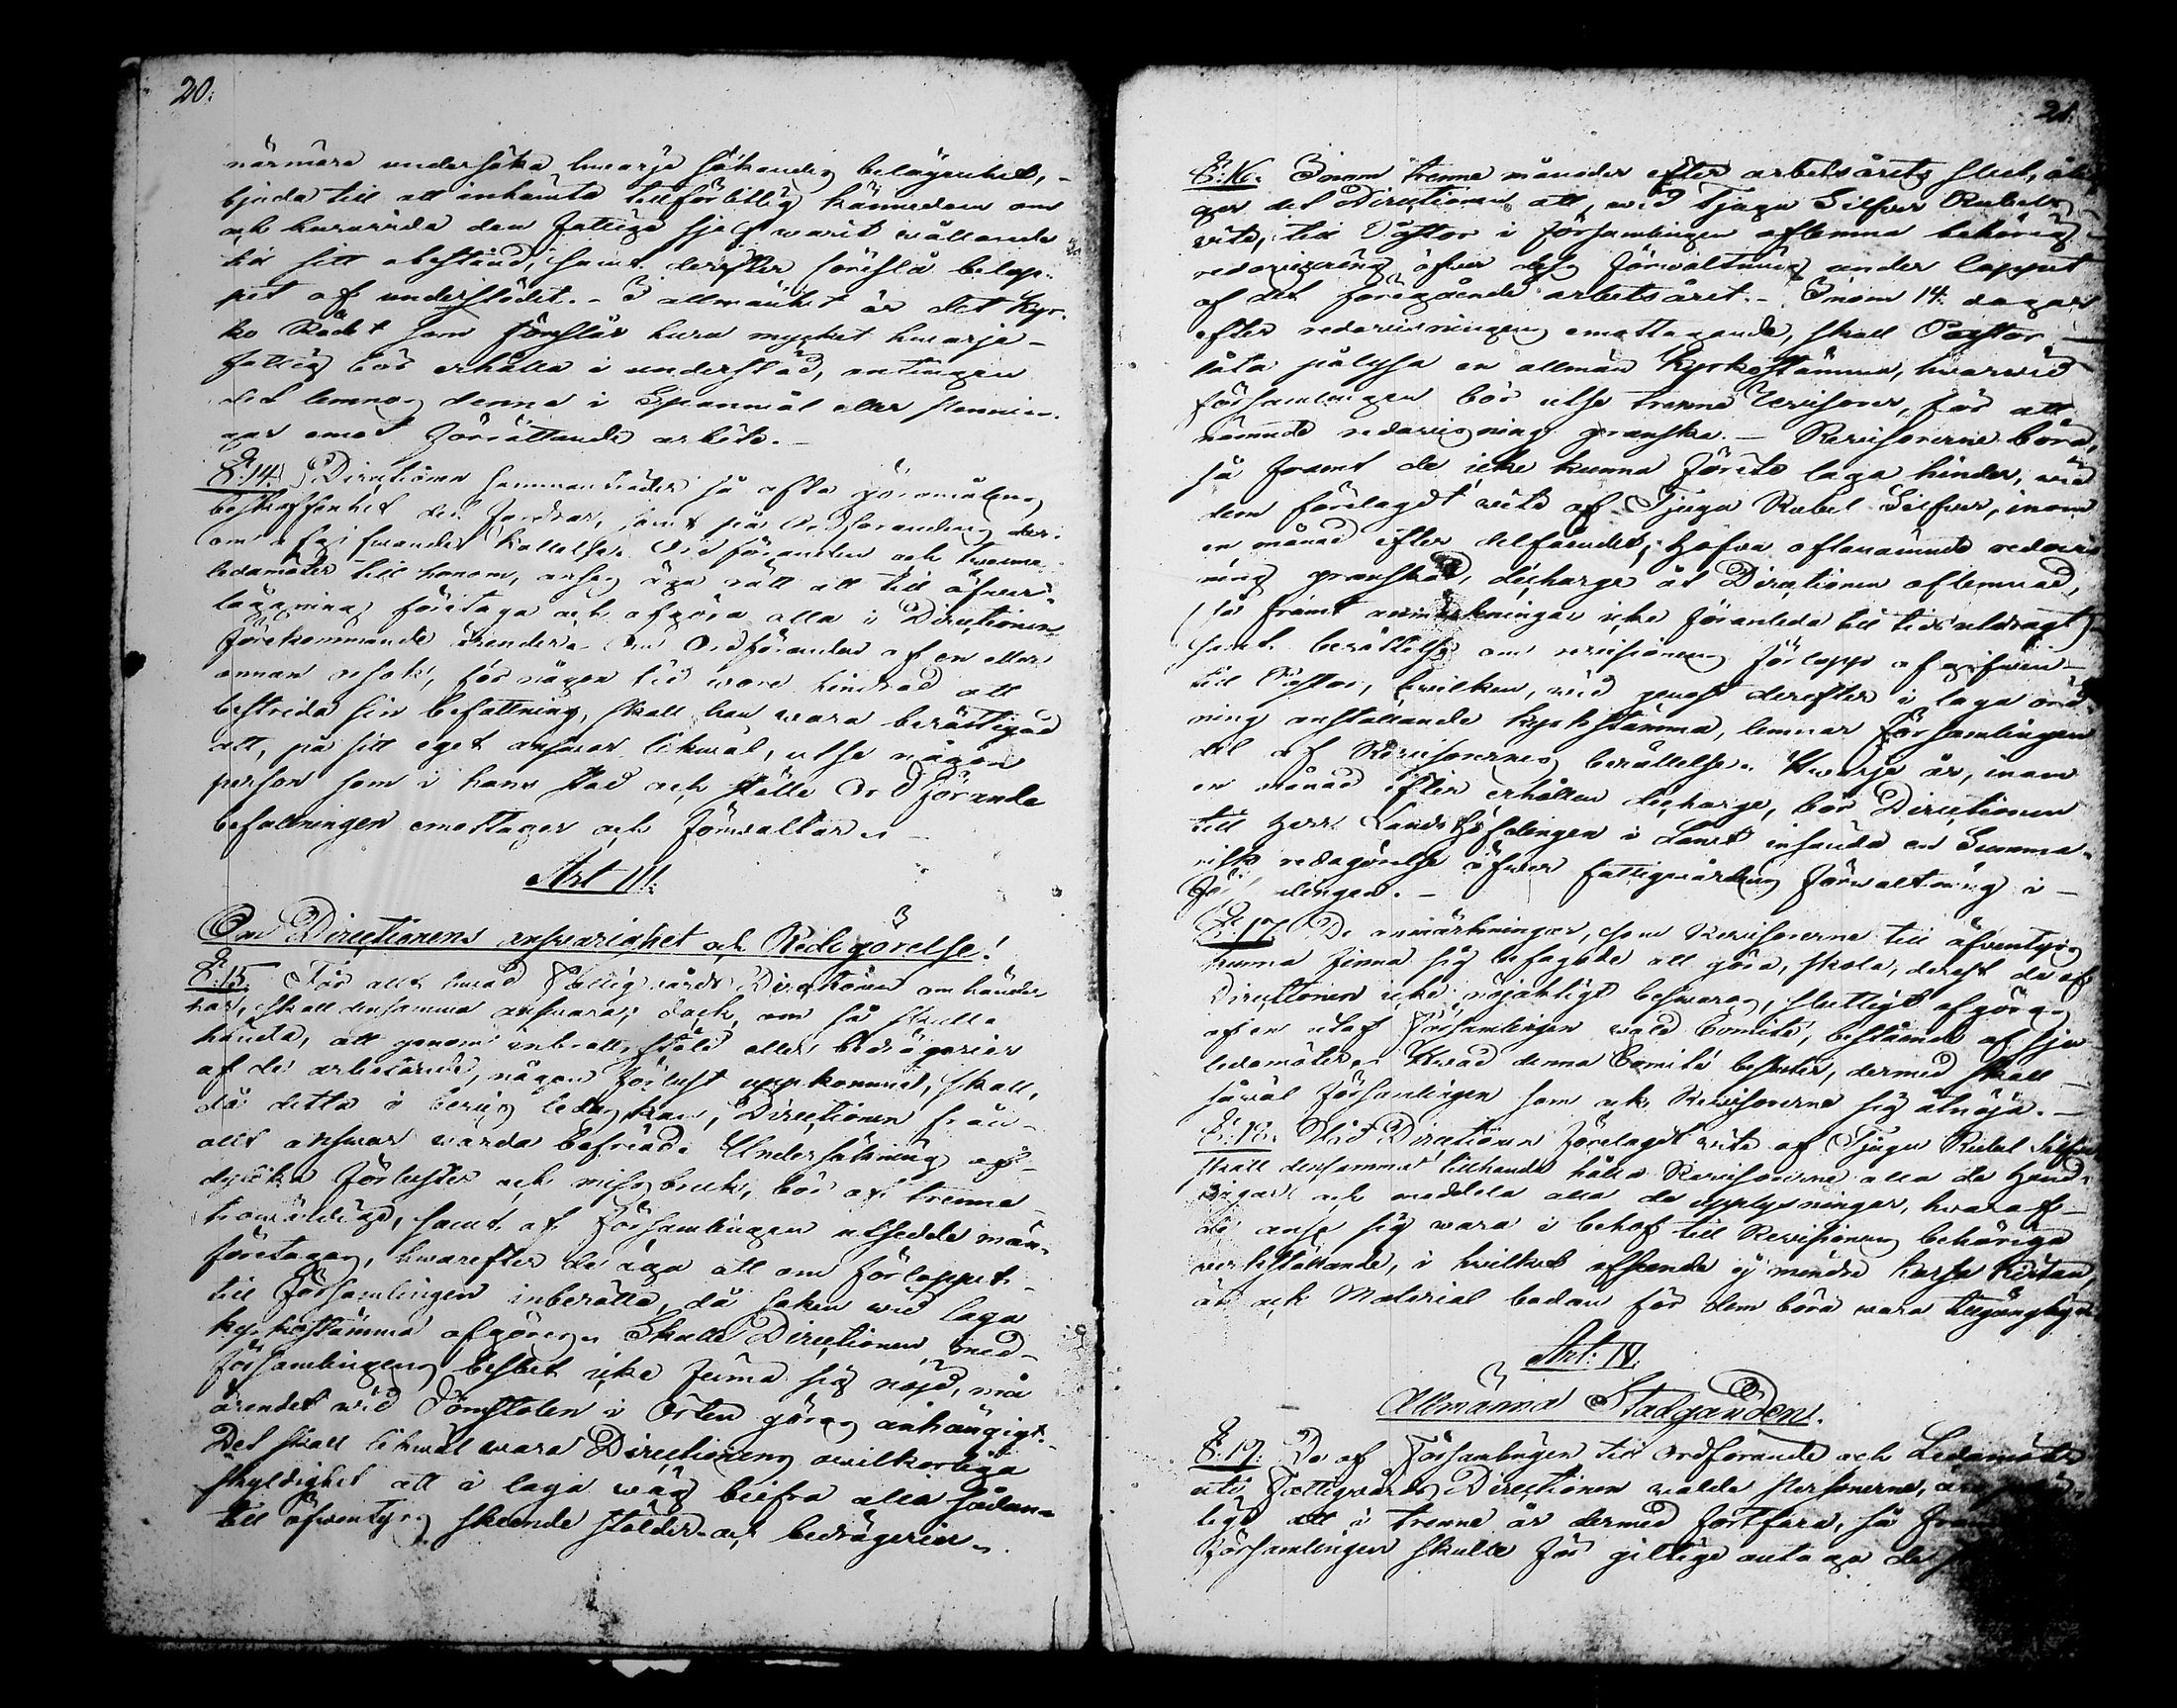 20.
närmare undersöka hwarje sökandes belägenhet,
bjuda till att inhämta tillförlitlig kännedom om
och huruwida den fattige sjelf warit wållande
till sitt obestånd, samt derefter föreslå belop-
pet af understödet. - I allmänhet är det Kyr-
ko Rådet som föreslår huru mycket hwarje
fattig bör erhålla i understöd, antingen
det lemnas denne i Spannmål eller pennin-
gar emot förrättande arbete. -
§:14. Directionen sammanträder så ofta göromålens
beskaffenhet det fordrar, samt på Ordförandens der-
om afgifwande kallelse. Ordföranden och trenne
ledamöter till honom, anses äga rätt att till öfwer-
läggning företaga och afgöra alla i Directionen
förekommande ärender. Om Ordföranden af en eller
annan orsak, för någon tid wore hindrad att
bestrida sin befattning, skall han wara berättigad
att, på sitt eget answar likwäl, utse någon
person som i hans stad och ställe Ordförande
befattningen emottager och förwaltar. -
Art III.
Om Directionens answarighet och Redogörelse!
§:15. För allt hwad Fattigwårds Directionen om händer
har, skall densamma answara; dock, om så skulle
hända, att genom inbrott, stöld eller bedrägerier
af de arbetande, någon förlust uppkommit, skall,
då detta i bewis ledas kan, Directionen från
allt answar warda befriad. Undersökning af
dylika förluster och missbruk, bör af trenne
trowärdige, samt af Församlingen utsedde män
företagas, hwarefter de äga att om förloppet
till Församlingen inberätta, då saken wid laga
kyrkostämma afgöres. Skulle Directionen med
Församlingens beslut icke finna sig nöjd, må
ärendet wid Domstolen i Orten göras anhängigt.
Det skall likwäl wara Directionens owilkorliga
skyldighet att å laga wäg beifra alla sådana
till äfwentyrs skeende stölder och bedrägerier.
21.
§:16. Inom trenne månader efter arbetsårets slut, åli-
ger det Directionen att, wid Tjugu Silfwer Rubels
wite, till Pastor i församlingen aflemna behörig
redowisning öfwer dess förwaltning under loppet
af det föregående arbetsåret. - Inom 14 dagar
efter redowisningens emottagande, skall Pastor
låta pålysa en allmän Kyrkostämma, hwarwid
församlingen bör utse trenne Revisorer, för att
nämnde redowisning granska. - Revisorerne böra,
så framt de icke kunna förete laga hinder, wid
dem förelagdt wite af Tjugu Rubel Silfwer, inom
en månad efter delfåendet, hafwa oftanämnde redowis-
ning granskad, décharge åt Directionen aflemnad,
(så framt anmärkningar icke föranleda till tids utdragt)
samt berättelse om revisionens förlopp afgifwen
till Pastor, hwilken, wid genast derefter i laga ord-
ning anställande kyrkostämma, lemnar Församlingen
del af Revisorernes berättelse. Hwarje år, inom
en månad efter erhållen décharge, bör Directionen
till Herr Lands Höfdingen i Länet insända en Summa-
risk redogörelse öfwer fattigwårdens förwaltning i
§:17. De anmärkningar, som Revisorerne till äfwentyrs
kunna finna sig befogade att göra, skola, derest de af
Directionen icke nöjaktigt beswaras, slutligt afgöras
af en utaf Församlingen wald Comité, bestående af sju
ledamöter. Hwad denna Comité besluter, dermed skall
såwäl Församlingen som ock Revisorerne sig åtnöja. -
§:18. Wid Directionen förelagdt wite af Tjugu Rubel Silfwer
skall densamma tillhanda hålla Revisorerne alla de Hand-
lingar och meddela alla de upplysningar, hwaraf
de anse sig wara i behof till Revisionens behöriga
werkställande, i hwilket afseende ej mindre Kassa Kistan
än ock Material bodan för dem böra wara tillgänglige.
Art: IV.
Allmänna Stadganden.
§:19. De af Församlingen till Ordförande och Ledamöter
uti Fattigwårds Directionen walde personerne, äro
lige att i trenne år dermed fortfara, så fram
Församlingen skulle för giltige antaga de